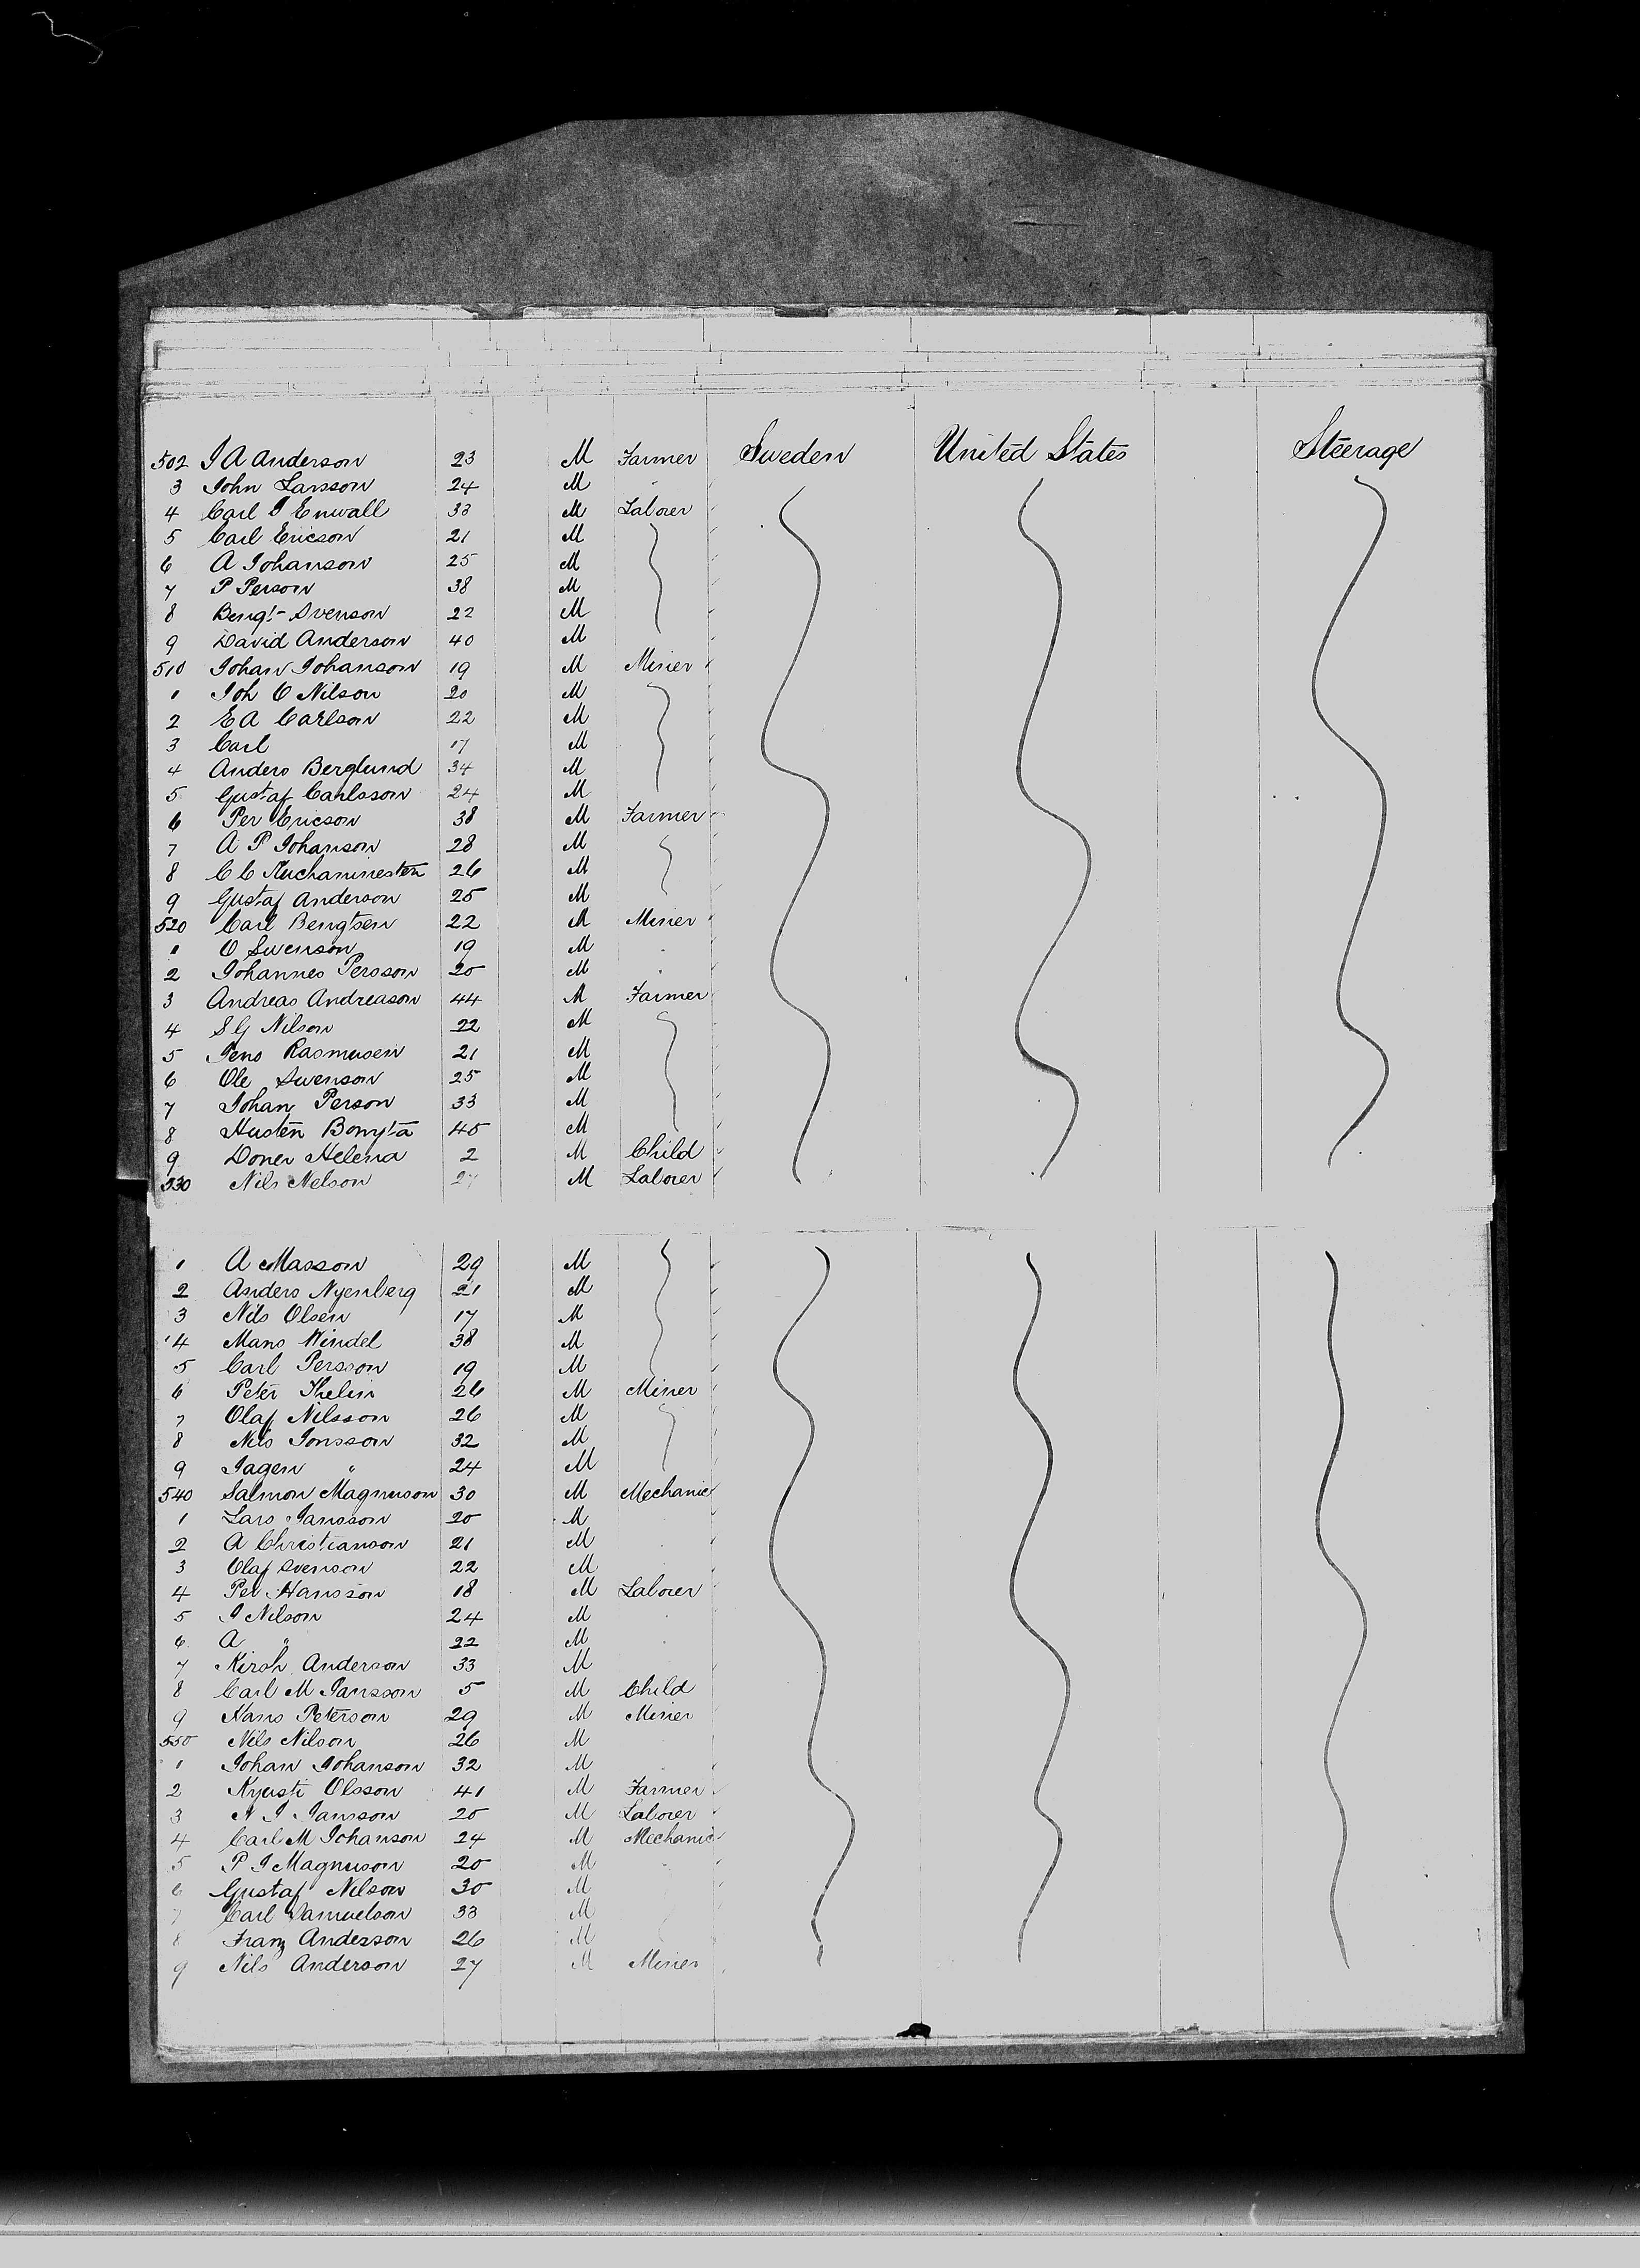 502 J A Anderson 23 M Farmer Sweden United States Steerage
3 John Larsson 24 M "
4 Carl J Enwall 33 M Laborer
5 Carl Ericson 21 M
6 A Johanson 25 M
7 P Person 38 M
8 Bengt Svenson 22 M
9 David Anderson 40 M
510 Johan Johanson 19 M Miner
1 Joh O Nilson 20 M
2 E A Carlson 22 M
3 Carl 17 M
4 Anders Berglund 34 M
5 Gustaf Carlsson 24 M
6 Per Ericson 38 M Farmer
7 A P Johanson 28 M
8 C C 26 M
9 Gustaf Anderson 25 M
520 Carl Bengtsen 22 M Miner
1 O Swenson 19 M "
2 Johannes Persson 20 M "
3 Andreas Andreason 44 M Farmer
4 S G Nilson 22 M
5 Jens Rasmusen 21 M
6 Ole Swenson 25 M
7 Johan Person 33 M
8 45 M
9 Doner Helena 2 M Child
530 Nils Nelson 27 M Laborer
1 A Masson 29 M
2 Anders Nyenberg 21 M
3 Nils Olsen 17 M
4 Mans Windel 38 M
5 Carl Persson 19 M
6 Peter Thelin 26 M Miner
7 Olaf Nilsson 26 M
8 Nils Jonsson 32 M
9 Jagen " 24 M
540 Salmon Magnuson 30 M Mechanic
1 Lars Jansson 20 M
2 A Christianson 21 M
3 Olaf Svenson 22 M
4 Per Hansson 18 M Laborer
5 J Nilson 24 M
6 A " 22 M
7 Kirsh Anderson 33 M
8 Carl M Jansson 5 M Child
9 Hans Peterson 29 M Miner
550 Nils Nilson 26 M
1 Johan Johanson 32 M
2 Olsson 41 M Farmer
3 N J Jansson 20 M Laborer
4 Carl M Johanson 24 M Mechanic
5 P J Magnuson 20 M
6 Gustaf Nilson 30 M
7 Carl Samuelson 33 M
8 Franz Anderson 26 M
9 Nils Anderson 27 M Miner